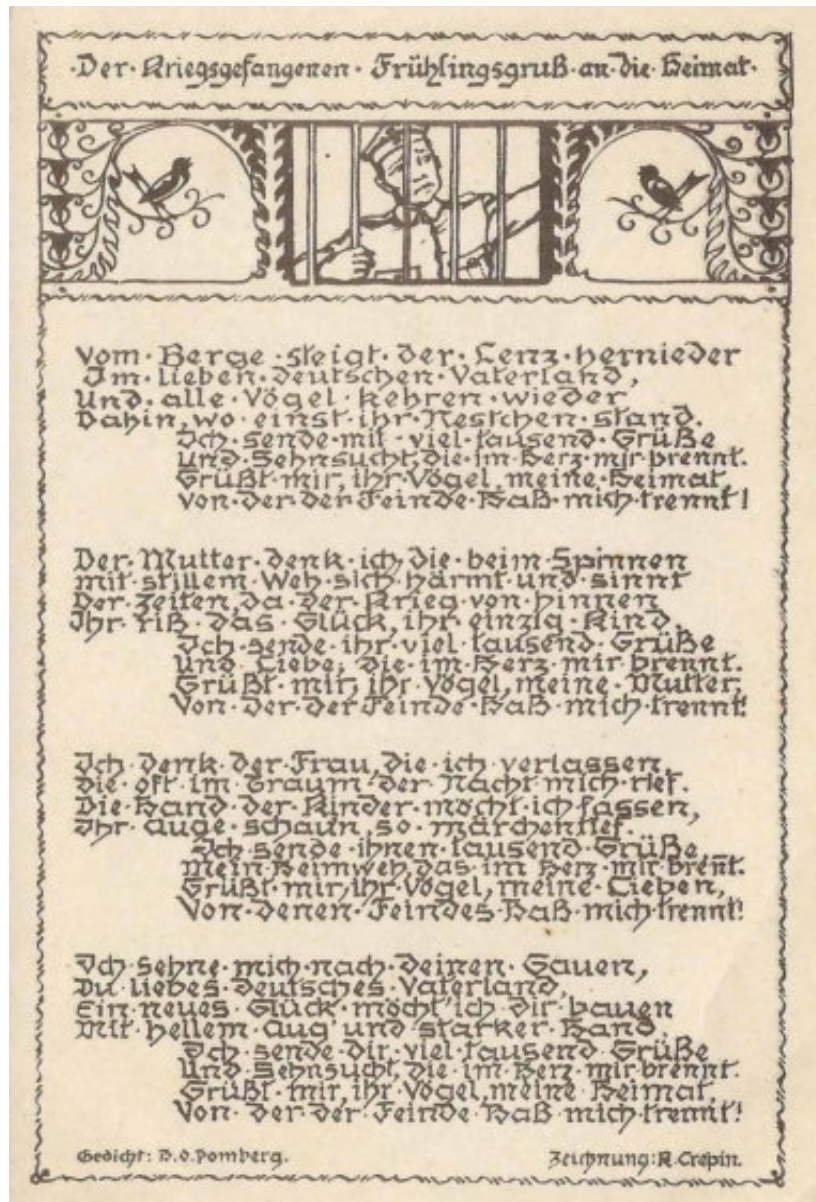 ·Der·Kriegsgefangenen·Frühlingsgruß·an·die·Heimat·
Vom·Berge·steigt·der·Lenz·hernieder
Im·lieben·deutschen·Vaterland,
Und·alle·Vögel·kehren·wieder
Dahin,wo·einst·ihr·Nestchen·stand.
Ich·sende·mit·viel·tausend·Grüße
Und·Sehnsucht,die·im·Herz·mir·brennt.
Grüßt·mir,ihr·Vögel,meine·Heimat,
Von·der·der·Feinde·Haß·mich·trennt!
Der·Mutter·denk·ich,die·beim·Spinnen
mit·stillem·Weh·sich·härmt·und·sinnt
Der·Zeiten,da·der·Krieg·von·hinnen
Ihr·riß·das·Glück,ihr·einzig·Kind.
Ich·sende·ihr·viel·tausend·Grüße
Und·Liebe,die·im·Herz·mir·brennt.
Grüßt·mir,ihr·Vögel,meine·Mutter,
Von·der·der·Feinde·Haß·mich·trennt!
Ich·denk·der·Frau,die·ich·verlassen,
Die·oft·im·Traum·der·Nacht·mich·rief.
Die·Hand·der·Kinder·möcht·ich·fassen,
Ihr·Auge·schaun,so·märchentief.
Ich·sende·ihnen·tausend·Grüße,
Mein·Heimweh,das·im·Herz·mir·breñt.
Grüßt·mir,ihr·Vögel,meine·Lieben,
Von·denen·Feindes·Haß·mich·trennt!
Ich·sehne·mich·nach·deinen·Gauen,
Du·liebes·deutsches·Vaterland,
Ein·neues·Glück·möcht'ich·dir·bauen
Mit·hellem·Aug'und·starker·Hand.
Ich·sende·dir·viel·tausend·Grüße
Und·Sehnsucht,die·im·Herz·mir·brennt.
Grüßt·mir,ihr·Vögel,meine·Heimat,
Von·der·der·Feinde·Haß·mich·trennt!
Gedicht: D.O.Pomberg.
Zeichnung:R.Crepin.